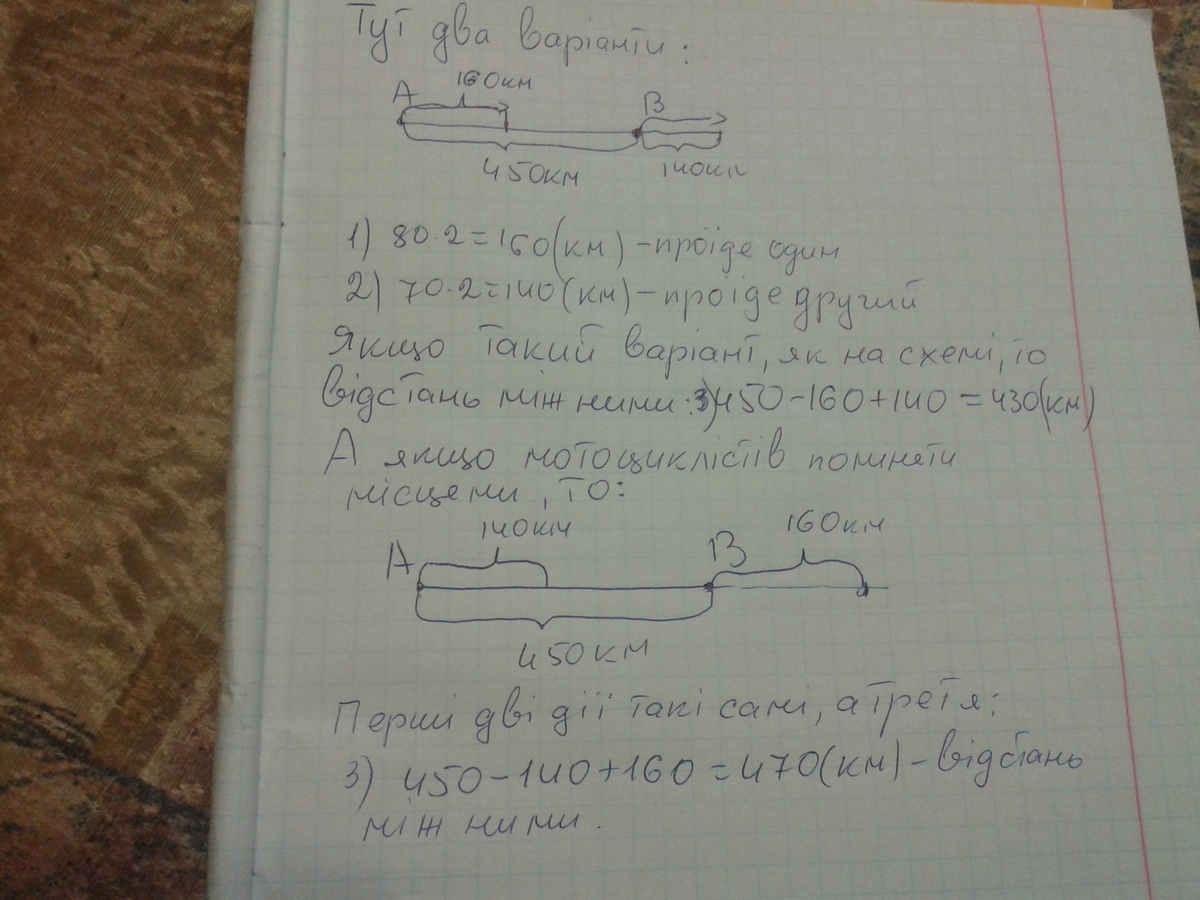 Тут два варіанти:
160км
А В
450км 140км
1) 80·2=160(км)-проїде один
2) 70·2=140(км)-проїде другий
Якщо такий варіант, як на схемі, то
відстань між ними: 3) 450-160+140=430(км)
А якщо мотоциклістів поміняти
місцеми, то:
140км 160км
А В
450км
Перші дві дії такі самі, а третя:
3) 450-140+160=470(км)-відстань
між ними.